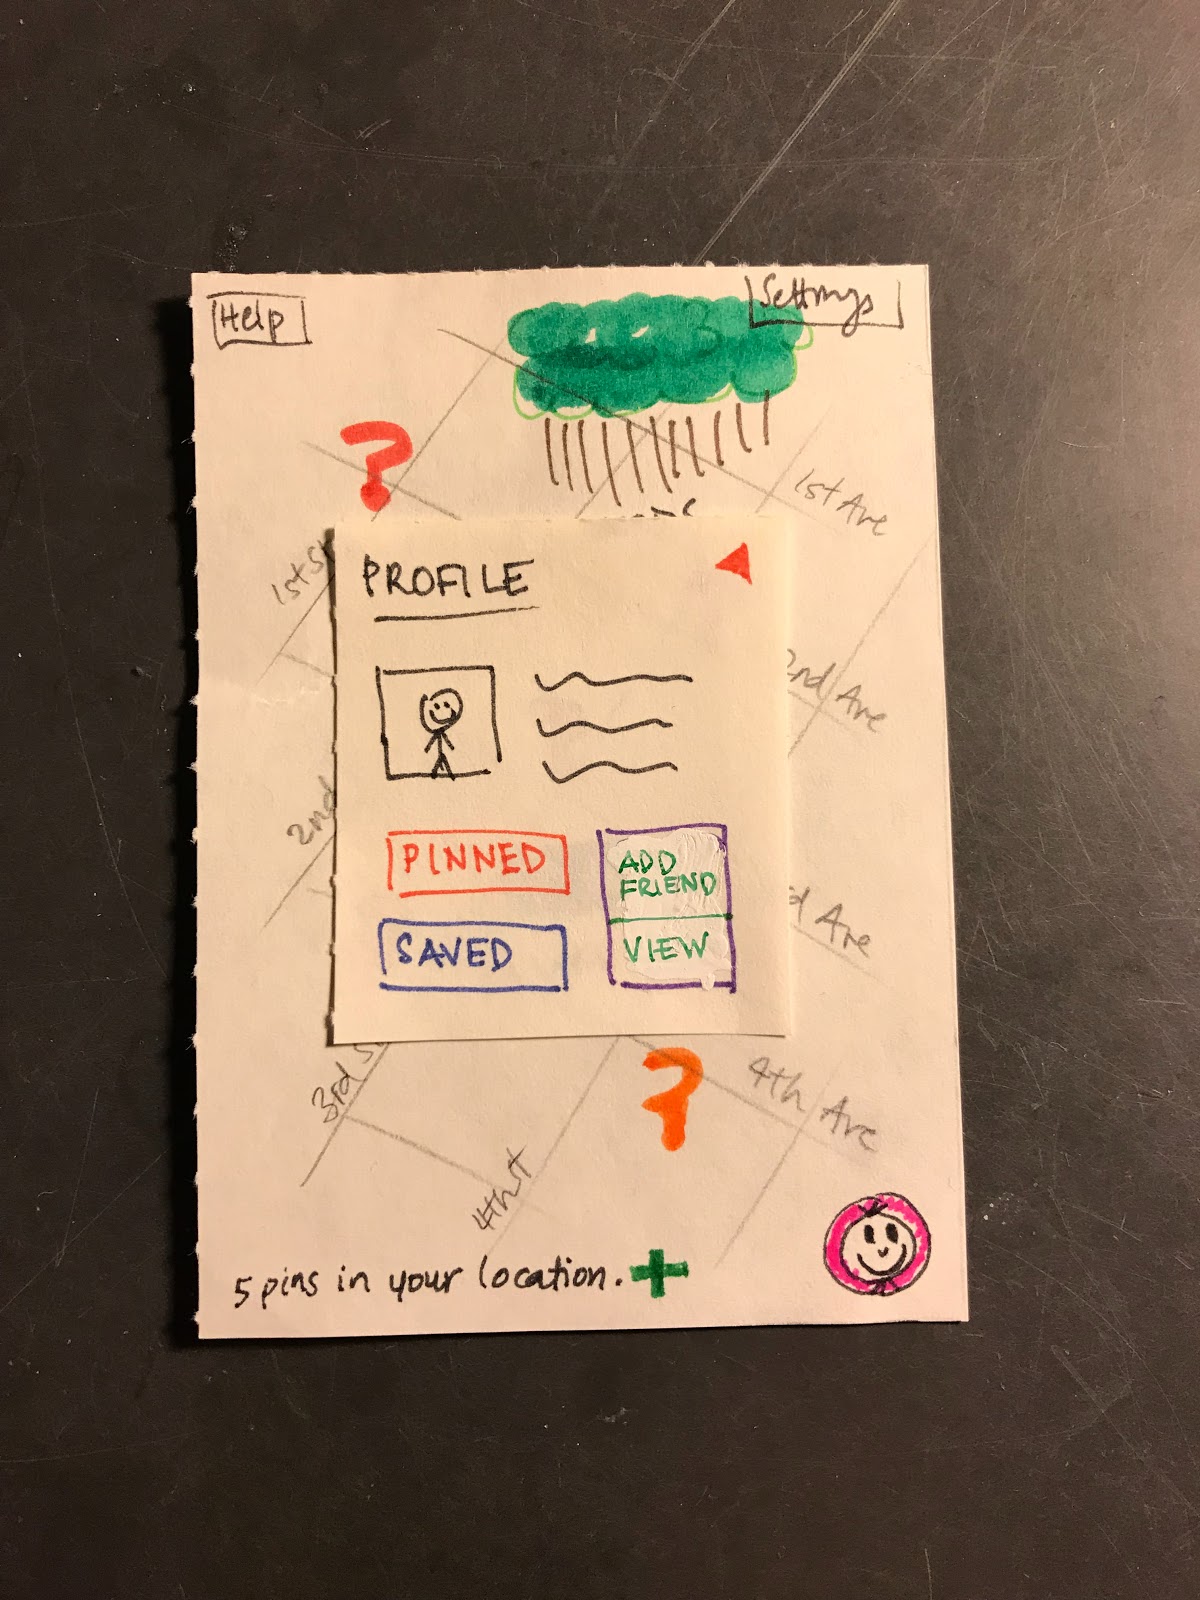 Help
Settings
1st Ave
1st St
PROFILE
2nd Ave
2nd
PINNED
ADD
FRIEND
SAVED
VIEW
d Ave
3rd S
4th Ave
4th
5 pins in your location. +